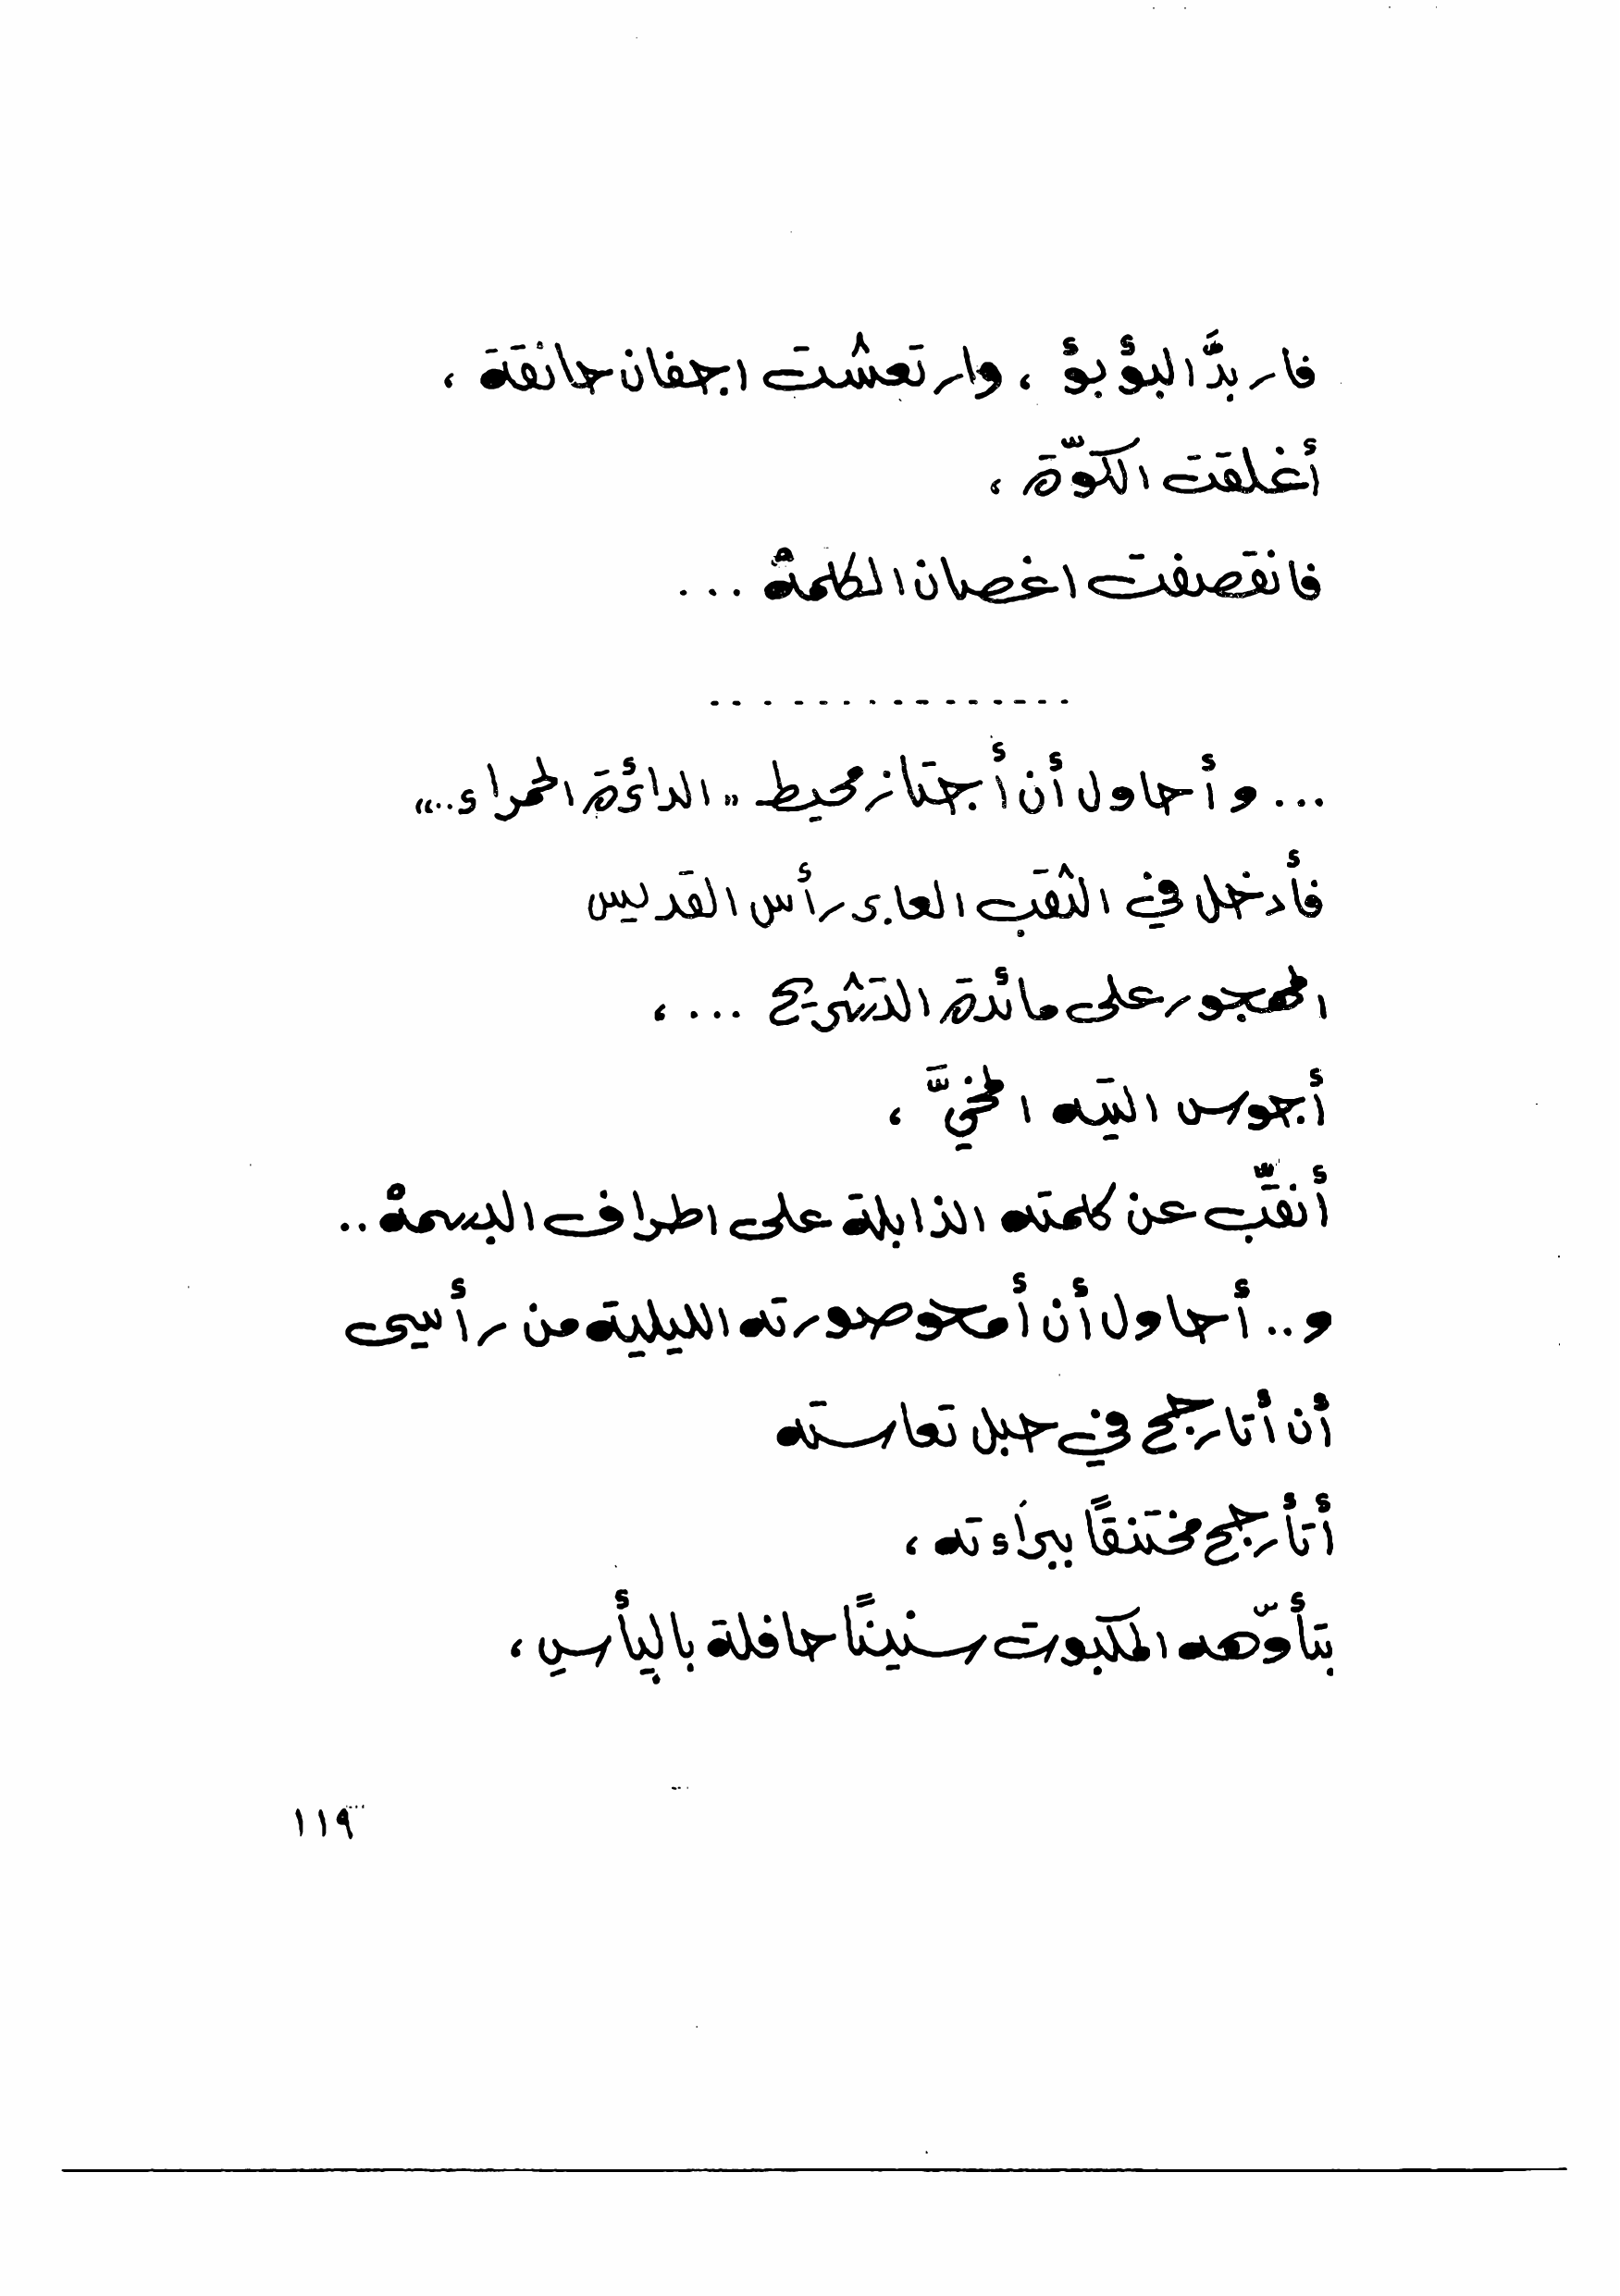 فاربدَّ البؤبؤ ، وارتعشت اجفان حانقة ،
أغلقت الكوّة ،
فانقصفت اغصان الكلمةْ ...
...............
... وأحاول أن أجتاز محيط « الدائرة الحمراء.. »
فأدخل في الثقب العابر رأس القديس
المهجور على مائدة التشريح ... ،
أجوس التيه المخيَّ ،
أنقّب عن كلمته الذابلة على اطراف البسمةْ ..
و .. أحاول أن أمحو صورته الليلية من رأسي
أن أتارجح في حبل تعاسته
أتأرجح مختنقًا ببراَءته ،
بتأوّهه المكبوت سنينًا حافلة باليأسِ ،
١١٩